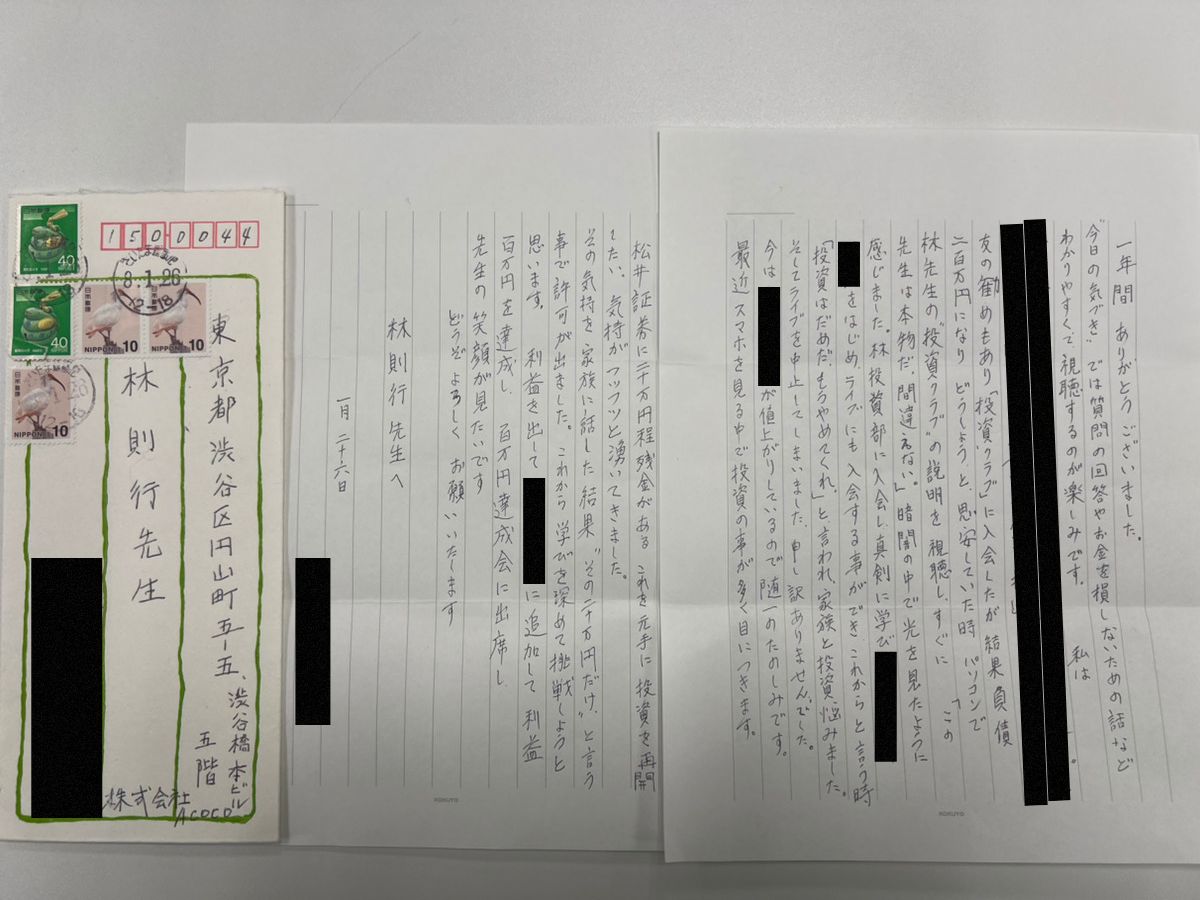 一年間 ありがとう ございました。
"今日の気づき" では質問の回答やお金を損しないための話など
わかりやすくて視聴するのが楽しみです。 私は
友の勧めもあり「投資クラブ」に入会したが 結果 負債
二百万円になり どうしようと、思案していた時 パソコンで
林先生の"投資クラブ"の説明を視聴し、すぐに 「この
先生は本物だ、間違えない。」暗闇の中で光を見たように
感じました。林投資部に入会し真剣に学び
をはじめ、ライブにも入会する事ができ、これからと言う時
「投資はだめだ、もうやめてくれ。」と言われ、家族と投資、悩みました。
そしてライブを中止してしまいました、申し訳ありませんでした。
今は が値上がりしているので随一のたのしみです。
最近 スマホを見る中で投資の事が多く目につきます。
松井証券に二十万円程残金がある これを元手に投資を再開
したい、気持がフツフツと湧いてきました。
その気持を家族に話した結果 "その二十万円だけ"と言う
事で許可が出ました。これから 学びを深めて挑戦しようと
思います。 利益を出して に追加して 利益
百万円を達成し、百万円達成会に出席し
先生の笑顔が見たいです
どうぞ よろしく お願いいたします
林 則行 先生へ
一月 二十六日
KOKUYO
KOKUYO
1500044
東京都渋谷区円山町五-五、渋谷橋本ビル
五階
林則行先生
株式会社
ACOCO
日本郵便
40
NIPPON
日本郵便
40
NIPPON
日本郵便
NIPPON 10
日本郵便
NIPPON 10
日本郵便
NIPPON 10
8.1.26
12-18